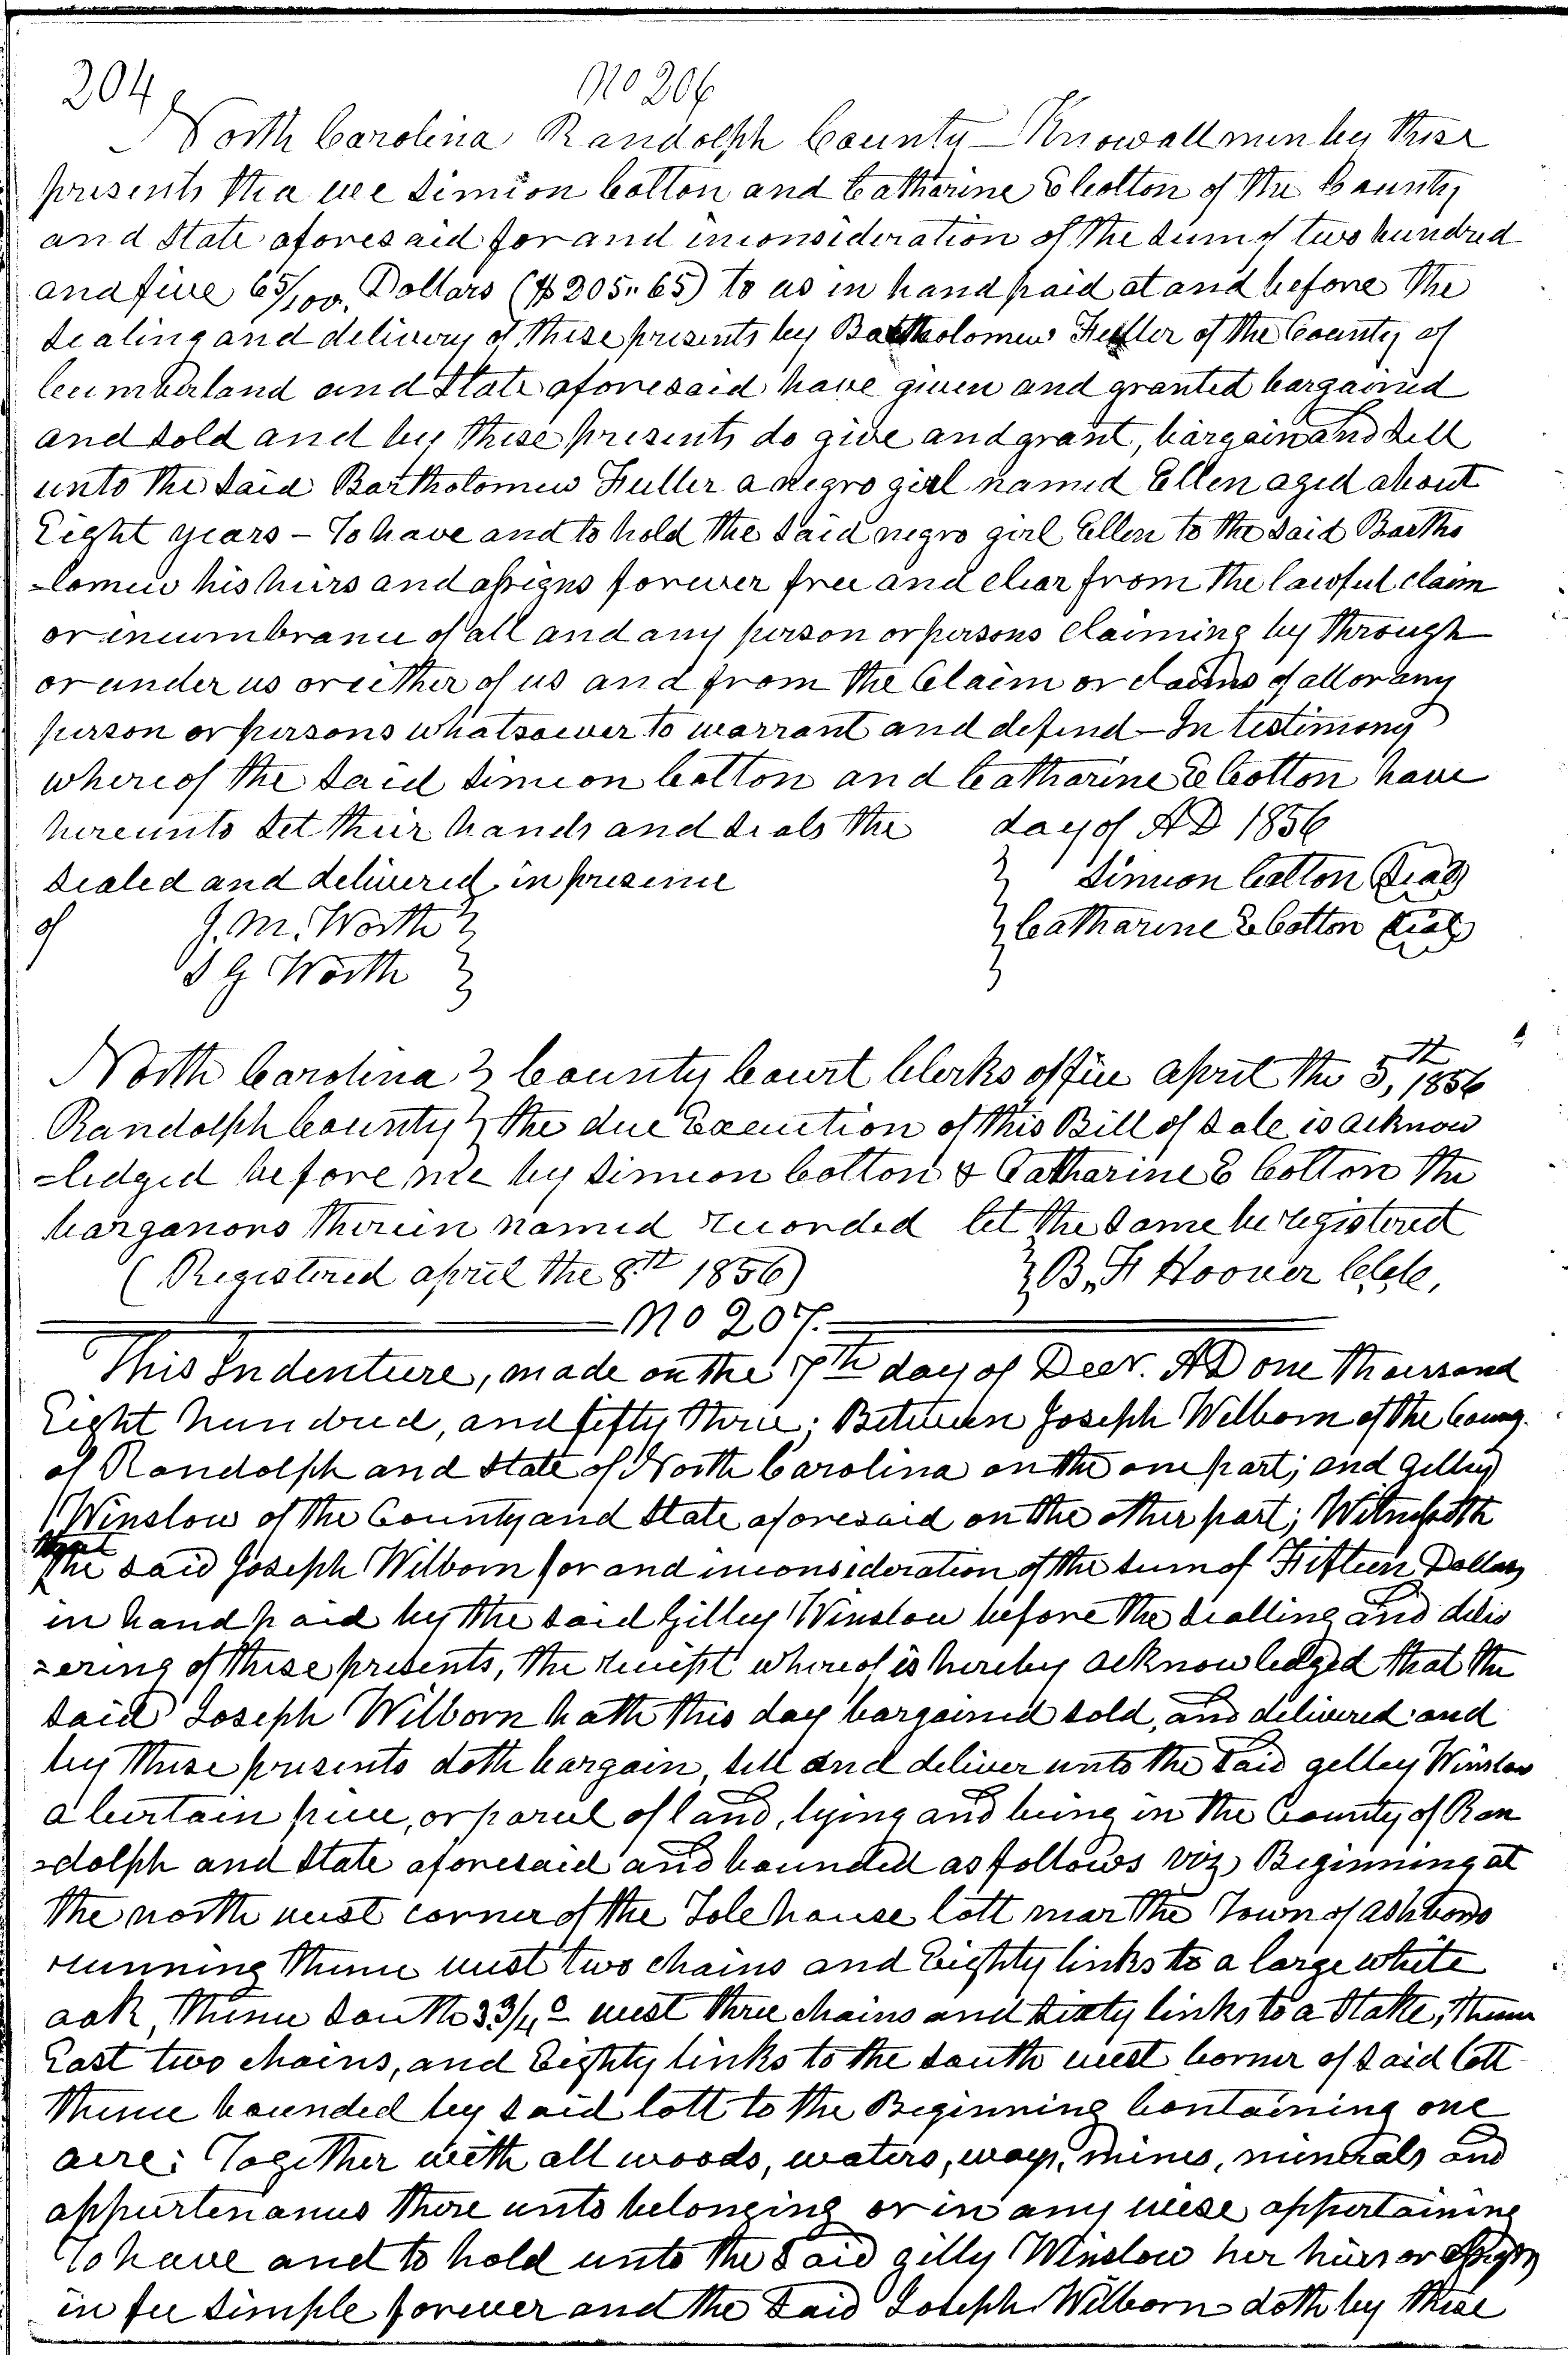 204
No 206
North Carolina Randolph County – Know all men by these
presents tha we Simeon Colton and Catharine E Colton of the County
and State aforesaid for and in consideration of the sum of two hundred
and five 65/100. Dollars ($205.. 65) to us in hand paid at and before the
sealing and delivery of these presents by Bartholomew Fuller of the County of
Cumberland and State aforesaid have given and granted bargained
and sold and by these presents do give and grant, bargain and sell
unto the said Bartholomew Fuller a negro girl named Ellen aged about
Eight years – To have and to hold the said negro girl Ellen to the said Bartho
-lomew his heirs and assigns forever free and clear from the lawful claim
or incumbrance of all and any person or persons claiming by through
or under us or either of us and from the Claim or claims of all or any
person or persons whatsoever to warrant and defend – In testimony
whereof the said Simeon Colton and Catharine E Colton have
hereunto set their hands and seals the day of AD 1856
Sealed and delivered in presence } Simeon Colton (Seal)
of J. M. Worth } } Catharine E Colton (Seal)
S G Worth } }
North Carolina } County Court Clerks office april the 5th, 1856
Randolph County } the due Execution of this Bill of Sale is acknow
=ledged before me by Simeon Colton & Catharine E Colton the
barganors therein named recorded let the same be registered
(Registered april the 8th 1856) } B. F Hoover Clk,
No 207.
This Indenture, made on the 7th day of Decr. AD one thousand
Eight hundred, and fifty three; Between Joseph Wilborn of the Couny.
of Randolph and State of North Carolina on the one part; and Gilley
Winslow of the County and State aforesaid on the other part; Witnesseth
that
the said Joseph Wilborn for and in consideration of the sum of Fifteen Dollars
in hand paid by the said Gilley Winslow before the sealling and deliv
=ering of these presents, the receipt whereof is hereby acknowledged that the
said Joseph Wilborn hath this day bargained sold, and delivered and
by these presents doth bargain, sell and deliver unto the said gilley Winslow
a Certain piece, or parcel of land, lying and being in the County of Ran
=dolph and State aforesaid and bounded as follows viz) Beginning at
the north west corner of the Tole house lott near the Town of Ashboro
running thence west two chains and Eighty links to a large white
oak, thence South 3 3/4° west three chains and sixty links to a Stake, thence
East two chains, and Eighty links to the south west Corner of said lott
thence bounded by said lott to the Beginning Containing one
acre; Together with all woods, waters, ways, mines, minerals and
appurtenances there unto belonging or in any wise appertaining
To have and to hold unto the said gilly Winslow her heirs or assigns
in fee simple forever and the said Joseph Wilborn doth by these